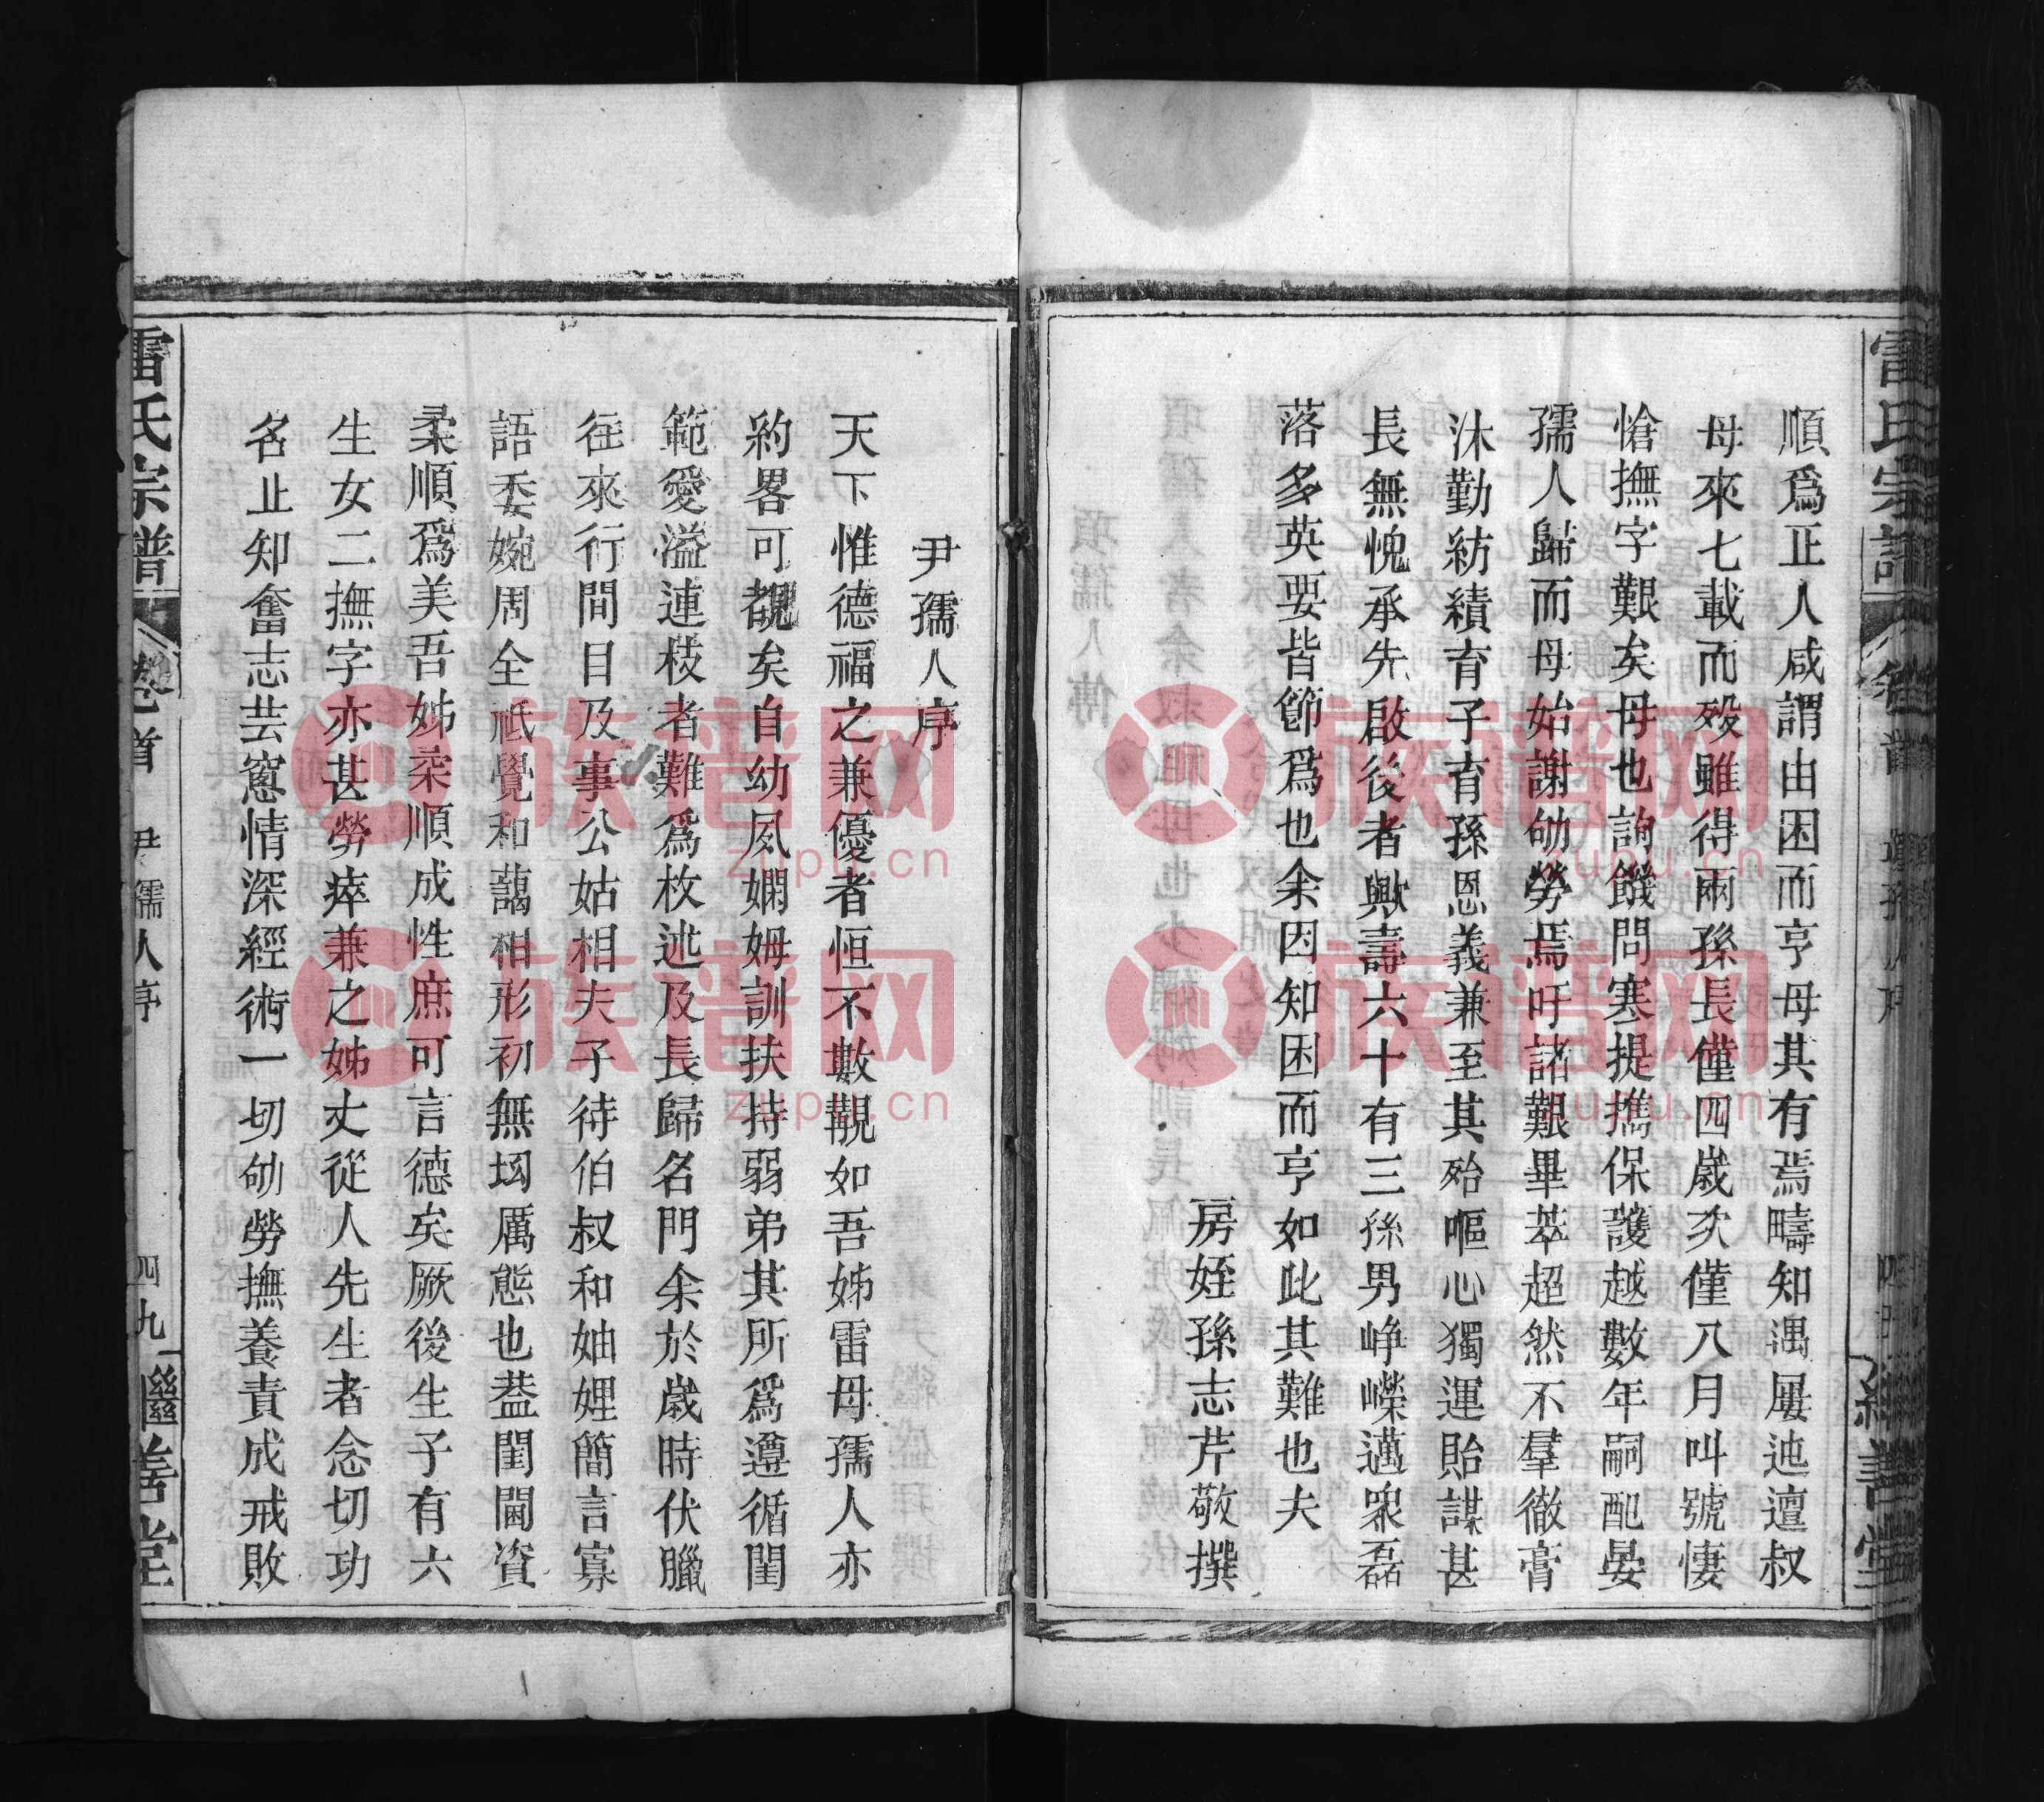 順爲正人咸謂由困而亨母其有焉疇知遇屢迍邅叔
母來七載而歿雖得兩孫長僅四歲次僅八月叫號悽
愴撫字艱矣母也詢饑問寒提攜保護越數年嗣配晏
孺人歸而母始謝劬勞焉吁諸艱畢萃超然不羣徹膏
沐勤紡績育子育孫恩義兼至其殆嘔心獨運貽謀甚
長無愧承先啟後者歟壽六十有三孫男崢嶸邁眾磊
落多英要皆節爲也余因知困而亨如此其難也夫
房姪孫志芹敬撰
尹孺人序
天下惟德福之兼優者恒不數覯如吾姊雷母孺人亦
約畧可覩矣自幼夙嫻姆訓扶持弱弟其所爲遵循閨
範愛溢連枝者難爲枚述及長歸名門余於歲時伏臘
往來行間目及事公姑相夫子待伯叔和妯娌簡言寡
語委婉周全祇覺和藹相形初無㘭厲態也葢閨閫資
柔順爲美吾姊柔順成性庶可言德矣厥後生子有六
生女二撫字亦甚勞瘁兼之姊丈從人先生者念切功
名止知奮志芸窻情深經術一切劬勞撫養責成戒敗
雷氏宗譜
卷首
尹孺人序
四九
繼善堂
族普网
zupu.cn
族普网
zupu.cn
族普网
zupu.cn
族普网
zupu.cn